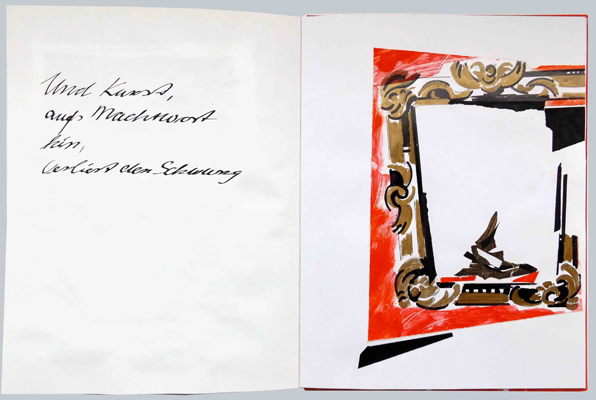 Und Kunst,
aufs Machtwort
hin,
verliert den Schwung